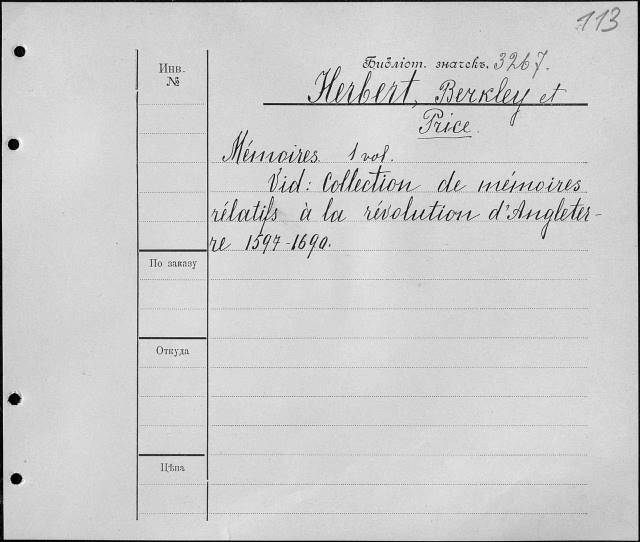 113
Инв.
№
Библіот. значекъ. 3267.
Herbert, Berkley et
Price.
Mémoires. 1 vol.
Vid: Collection de mémoires
rélatifs à la révolution d'Angleter-
re 1597-1690.
По заказу
Откуда
Цѣна